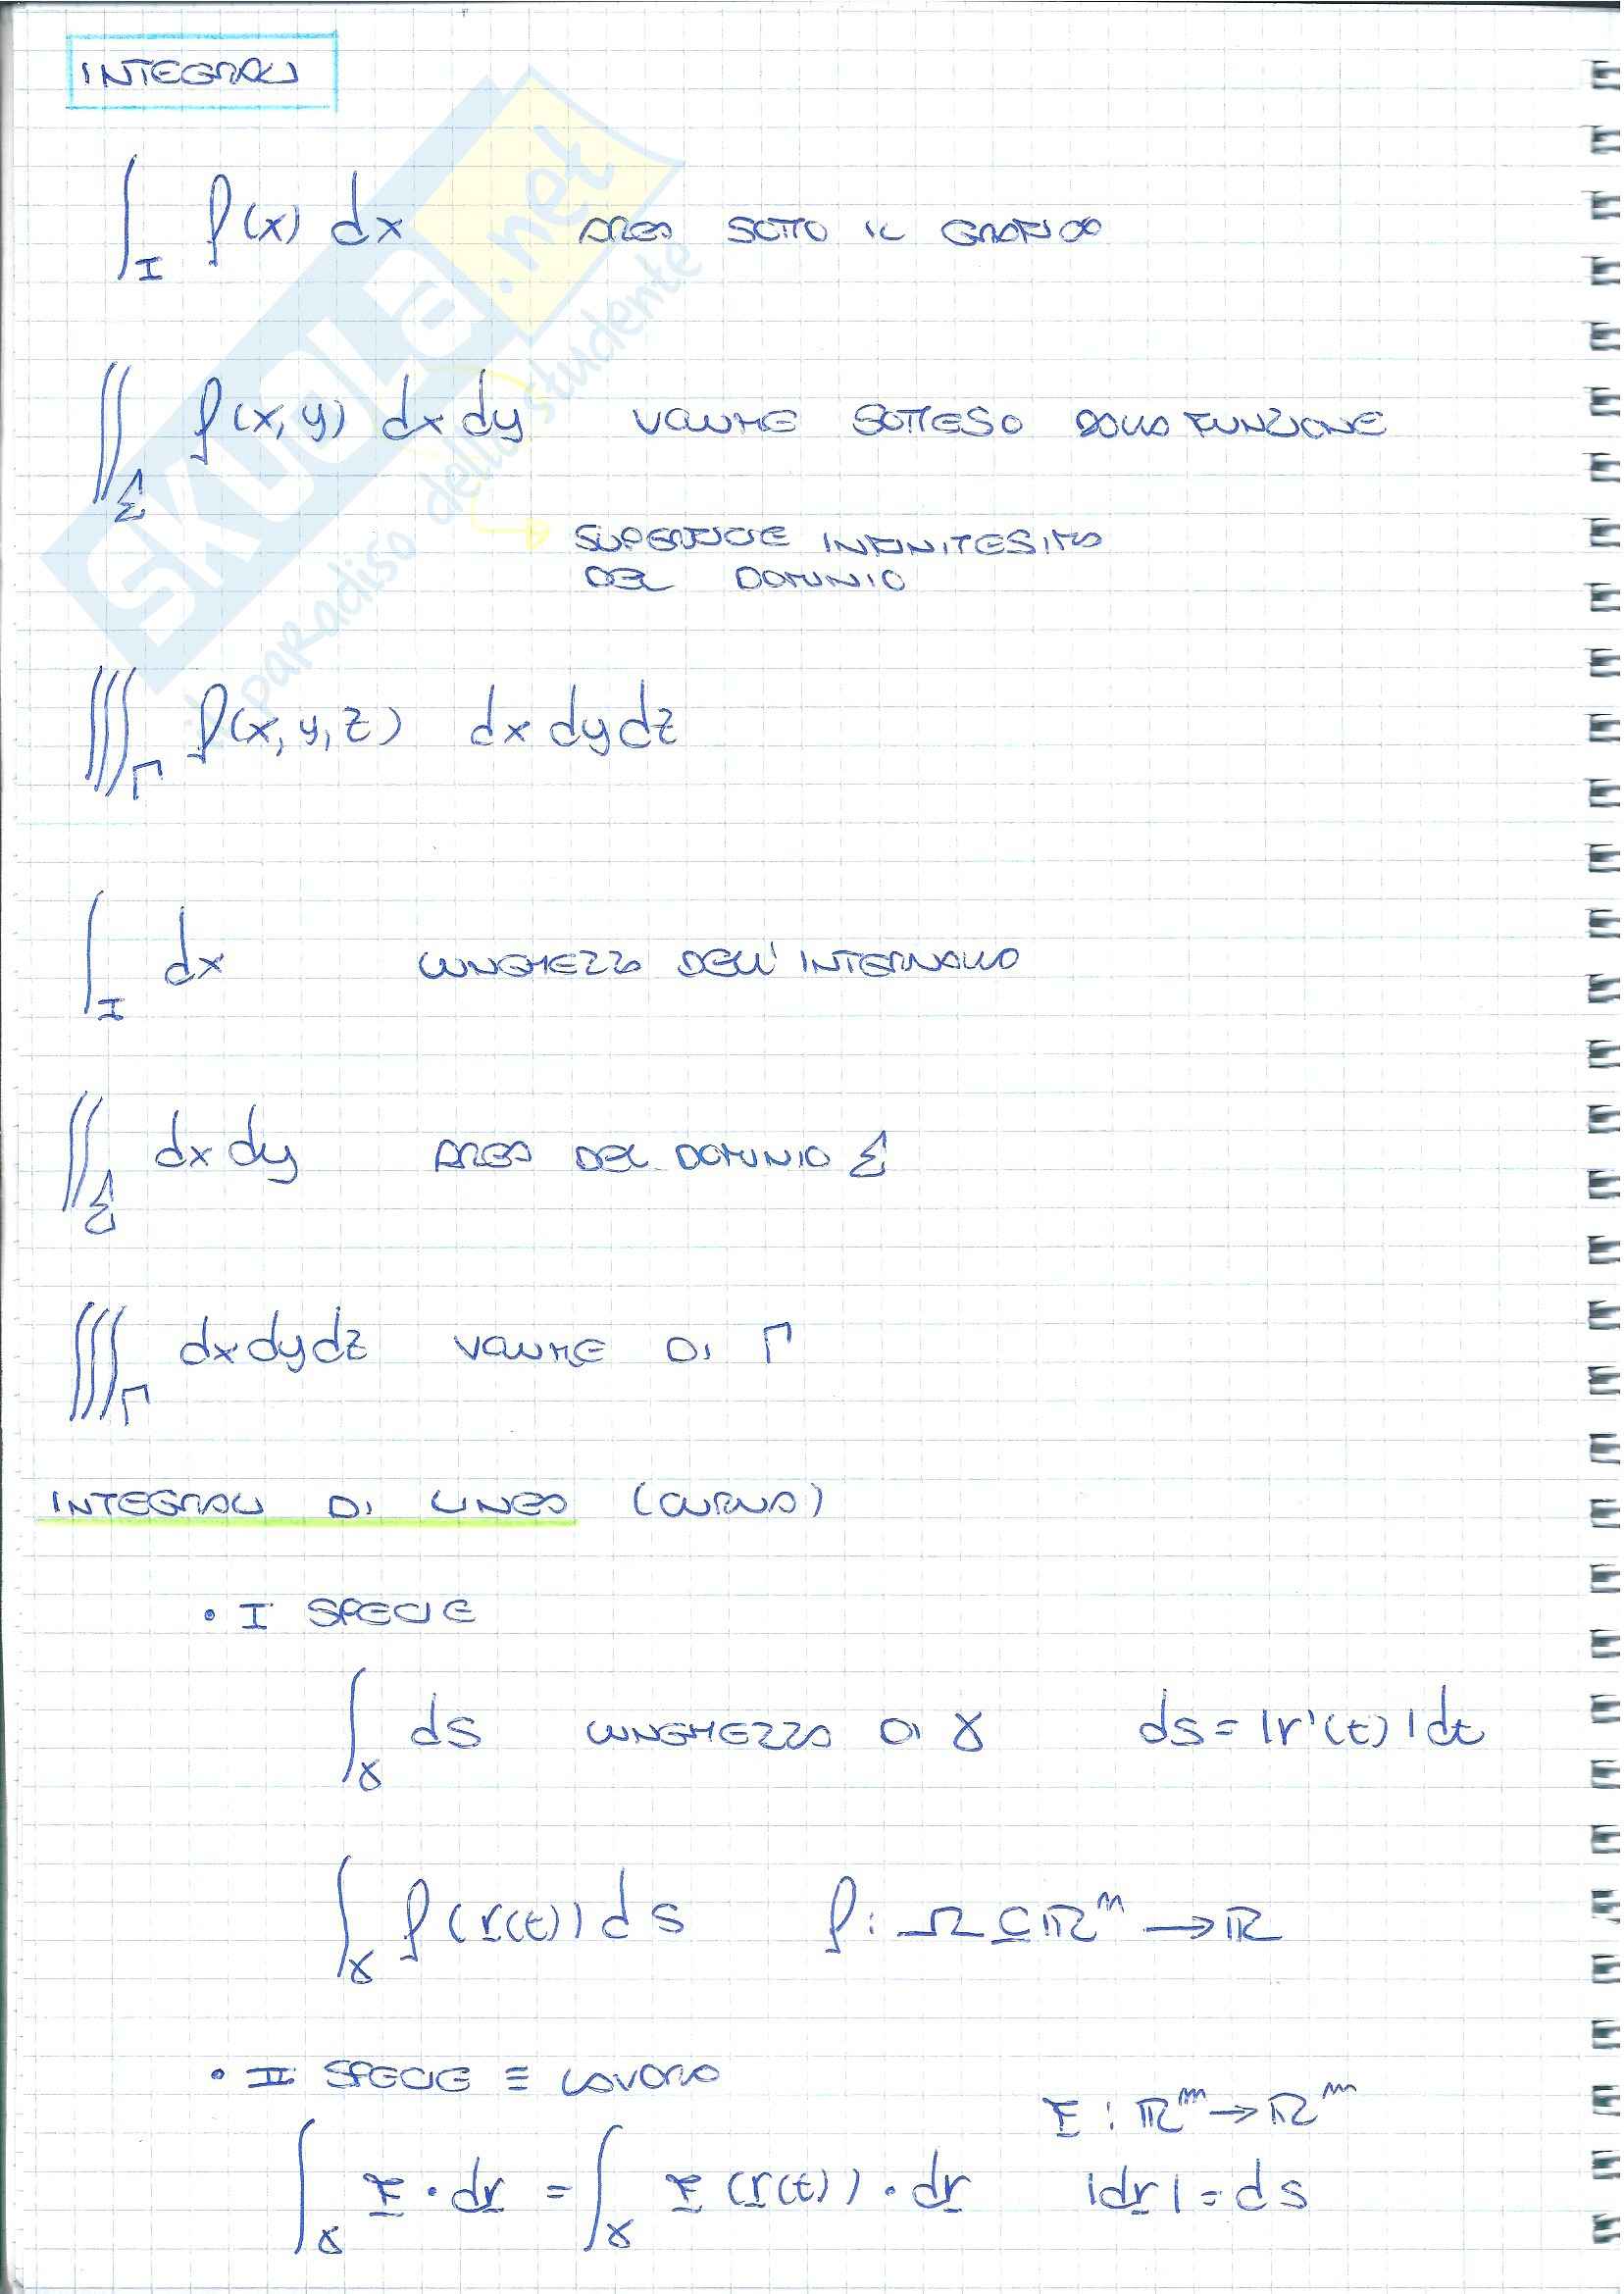 INTEGRALI
∫_I f(x) dx AREA SOTTO IL GRAFICO
∬_Σ f(x,y) dx dy VOLUME SOTTESO DALLA FUNZIONE
SUPERFICIE INFINITESIMA
DEL DOMINIO
∭_Γ f(x,y,z) dx dy dz
∫_I dx LUNGHEZZA DELL'INTERVALLO
∬_Σ dx dy AREA DEL DOMINIO Σ
∭_Γ dx dy dz VOLUME DI Γ
INTEGRALI DI LINEA (CURVA)
• I SPECIE
∫_γ ds LUNGHEZZA DI γ ds = |r'(t)| dt
∫_γ f(r(t)) ds f: Ω ⊆ ℝ^n → ℝ
• II SPECIE ≡ LAVORO
F : ℝ^m → ℝ^m
∫_γ F · dr = ∫_γ F(r(t)) · dr |dr| = ds
SKUOLA.net
il paradiso dello studente